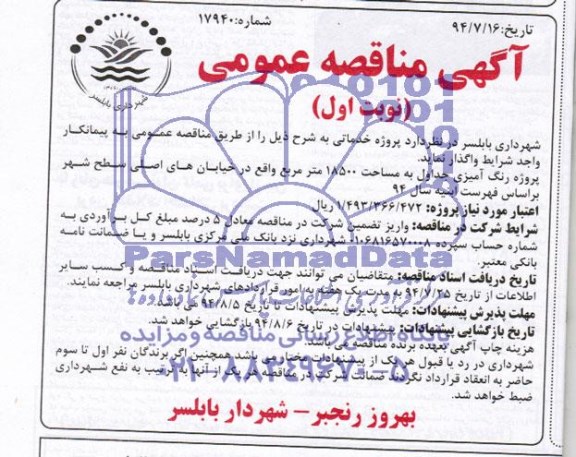 تاریخ: ۹۴/۷/۱۶
شماره: ۱۷۹۴۰
شهرداری بابلسر
آگهی مناقصه عمومی
(نوبت اول)
شهرداری بابلسر در نظر دارد پروژه خدماتی به شرح ذیل را از طریق مناقصه عمومی به پیمانکار
واجد شرایط واگذار نماید.
پروژه رنگ آمیزی جداول به مساحت ۱۸۵۰۰ متر مربع واقع در خیابان های اصلی سطح شهر
براساس فهرست ابنیه سال ۹۴
اعتبار مورد نیاز پروژه: ۱/۴۹۳/۳۶۶/۴۷۲ ریال
شرایط شرکت در مناقصه: واریز تضمین شرکت در مناقصه معادل ۵ درصد مبلغ کل برآوردی به
شماره حساب سپرده ۰۱۰۶۸۱۶۵۷۰۰۰۸ شهرداری نزد بانک ملی مرکزی بابلسر و یا ضمانت نامه
بانکی معتبر.
تاریخ دریافت اسناد مناقصه: متقاضیان می توانند جهت دریافت اسناد مناقصه و کسب سایر
اطلاعات از تاریخ به مدت یک هفته به امور قراردادهای شهرداری بابلسر مراجعه نمایند.
مهلت پذیرش پیشنهادات: مهلت پذیرش پیشنهادات تا تاریخ ۹۴/۸/۵ می باشد.
تاریخ بازگشایی پیشنهادات: پیشنهادات در تاریخ ۹۴/۸/۶ بازگشایی خواهد شد.
هزینه چاپ آگهی بعهده برنده مناقصه می باشد.
شهرداری در رد یا قبول هر یک از پیشنهادات مختار می باشد. همچنین اگر برندگان نفر اول تا سوم
حاضر به انعقاد قرارداد نگردند ضمانت شرکت در مناقصه هر یک از آنها به ترتیب به نفع شهرداری
ضبط خواهد شد.
بهروز رنجبر – شهردار بابلسر
ParsNamadData
پایگاه اطلاع رسانی مناقصه و مزایده
۰۲۱-۸۸۳۴۹۶۷۰-۵